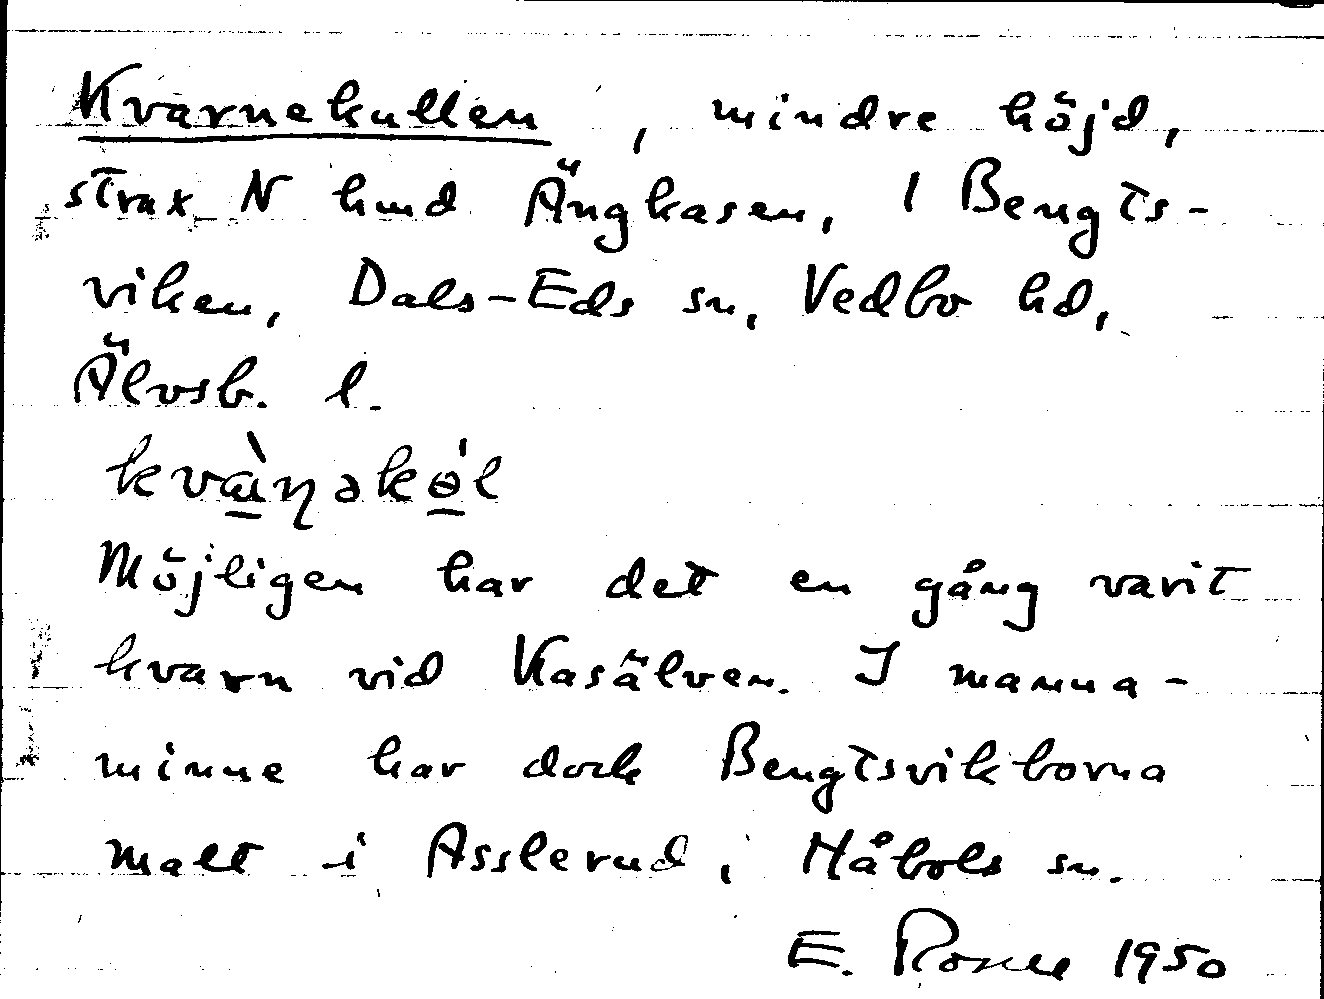 Kvarnekullen, mindre höjd,
strax N hmd Ängkasen, 1 Bengts-
viken, Dals-Eds sn, Vedbo hd,
Älvsb. l.
kvàɳəkɵ̀l
Möjligen har det en gång varit
kvarn vid Kasälven. I manna-
minne har dock Bengtsvikborna
malt i Asslerud, Håbols sn.
E. 1950